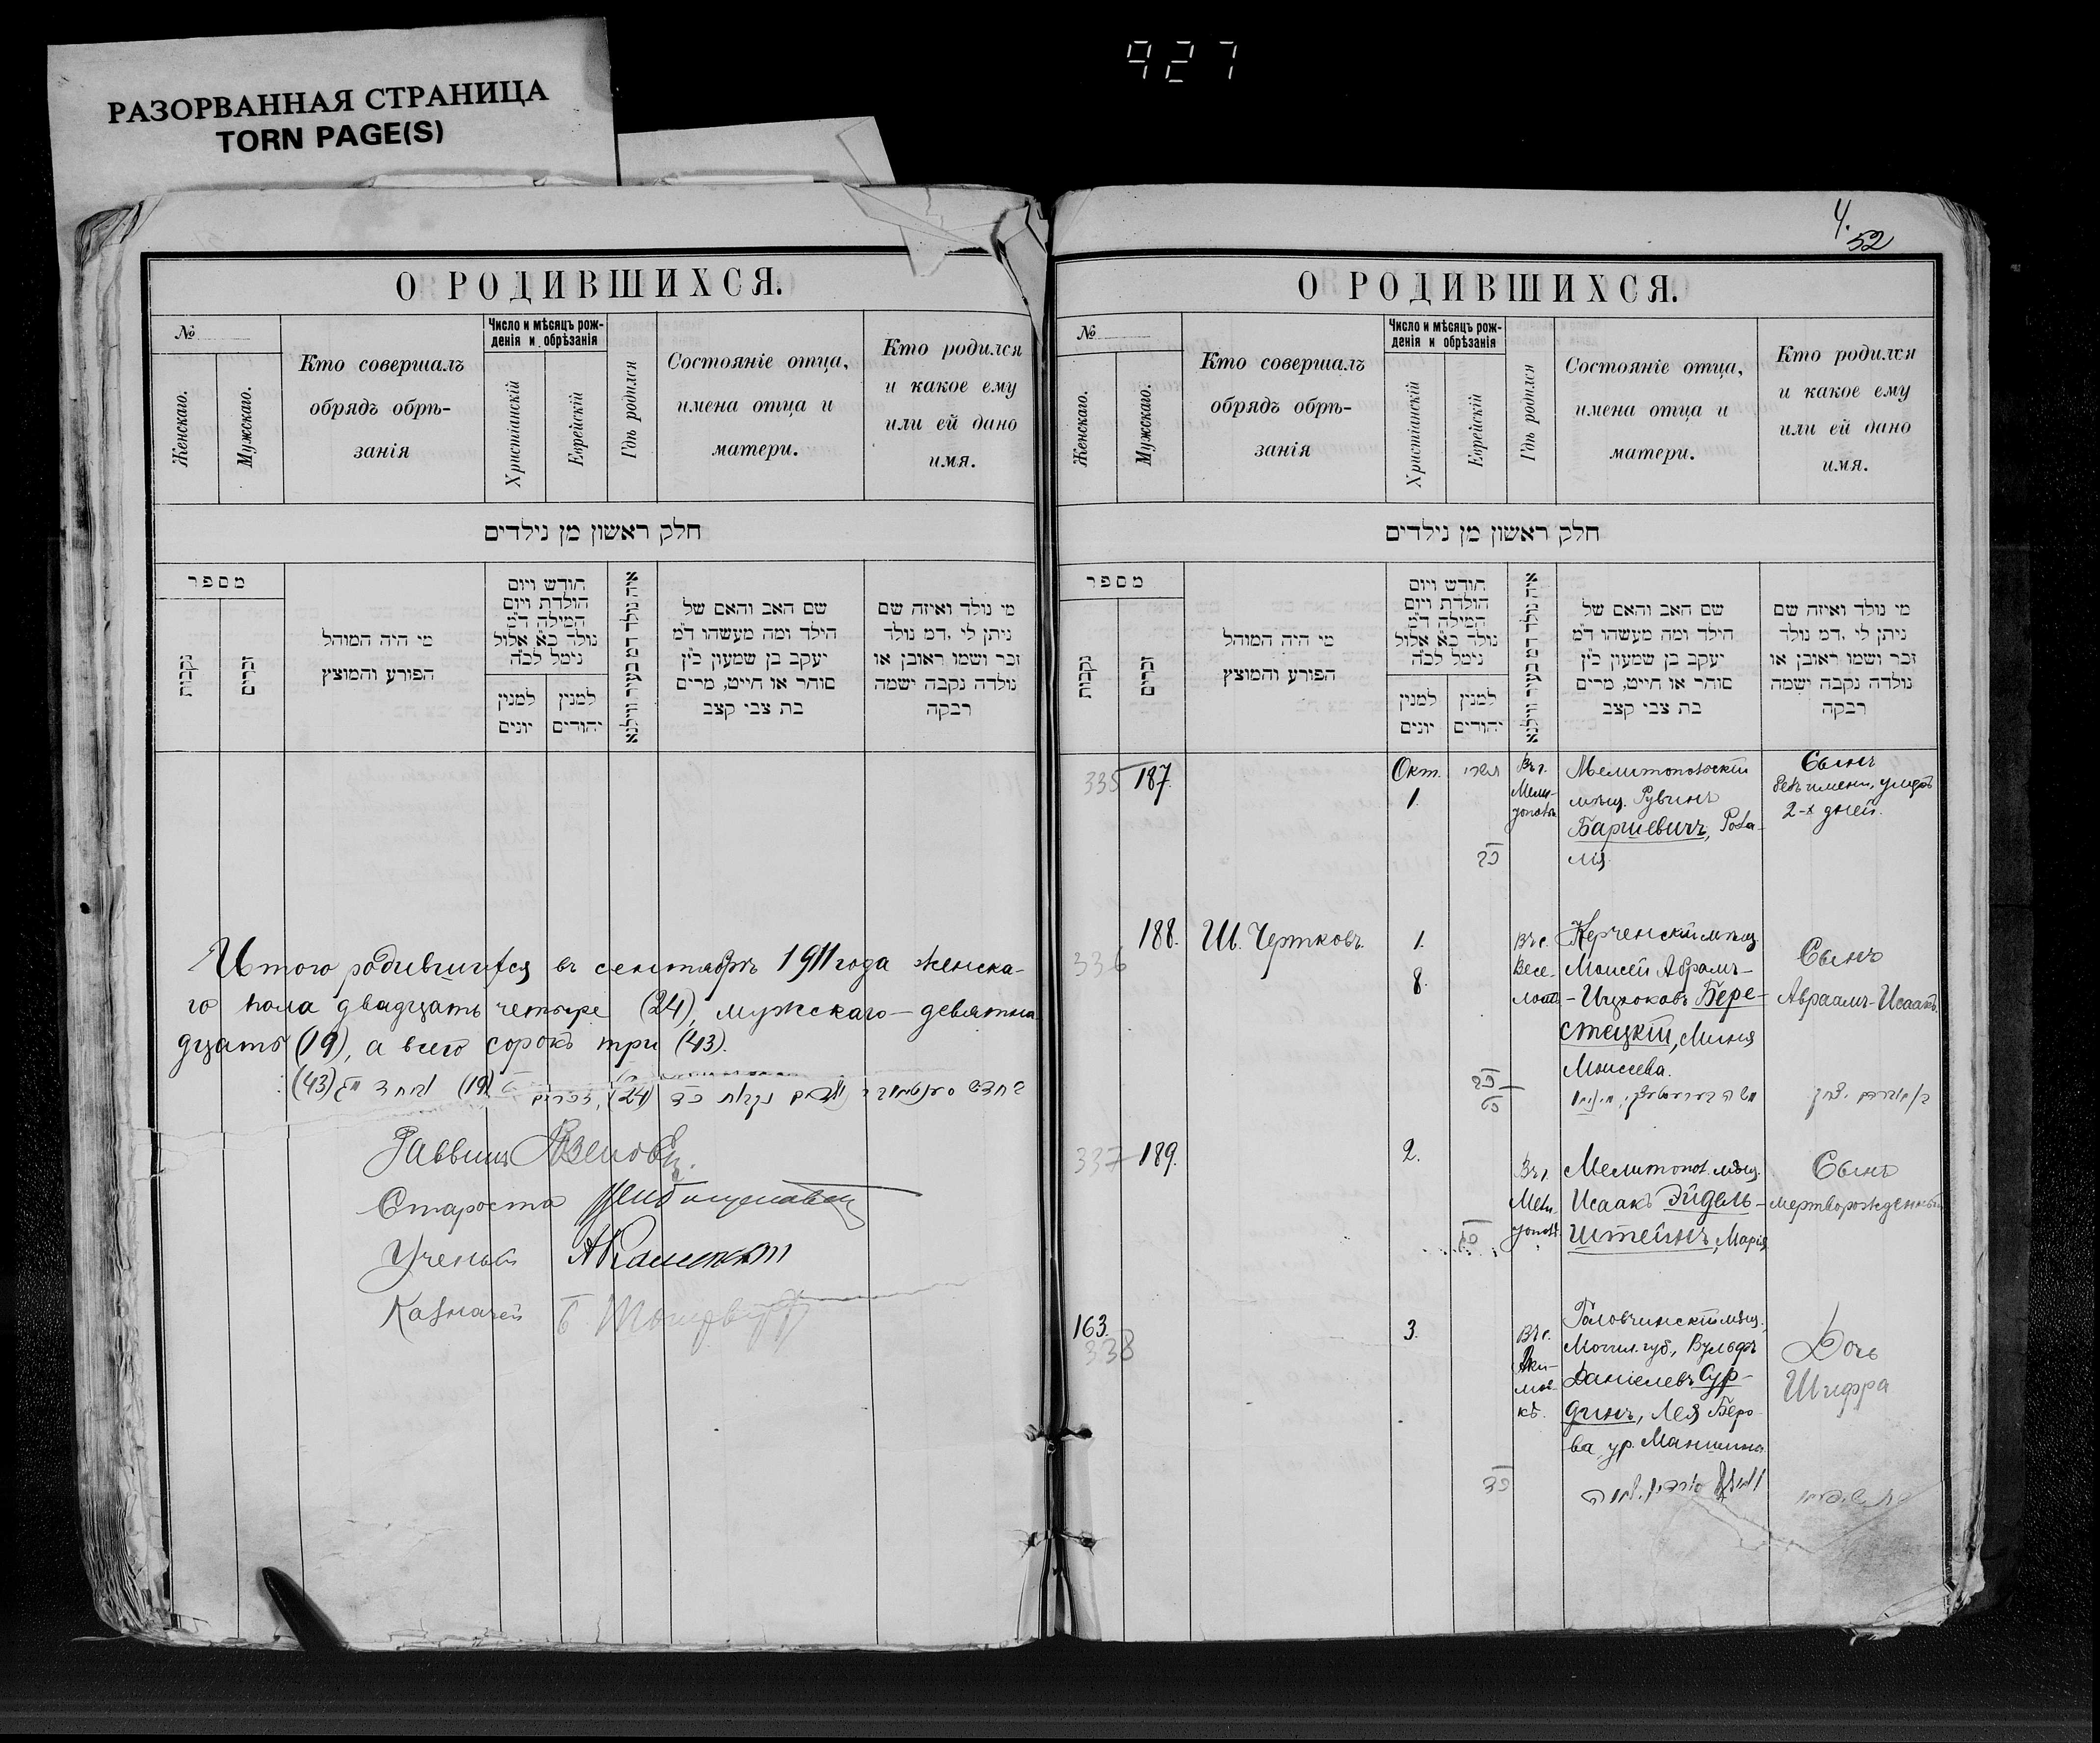 927
РАЗОРВАННАЯ СТРАНИЦА
TORN PAGE(S)
О РОДИВШИХСЯ.
№
Женскаго.
Мужскаго.
Кто совершалъ
обрядъ обрѣ-
занія
Число и мѣсяцъ рож-
денія и обрѣзанія
Христіанскій
Еврейскій
Гдѣ родился
Состояніе отца,
имена отца и
матери.
Кто родился
и какое ему
или ей дано
имя.
חלק ראשון מן נילדים
מספר
נקבות
זכרים
מי היה המוהל
הפורע והמוצץ
חודש ויום
הולדת ויום
המילה ד"מ
נולד כא אלול
נימל לכ"ה
למנין
יונים
למנין
יהודים
איה נולד דמ בעיר ווילנא
שם האב והאם של
הילד ומה מעשהו ד"מ
יעקב בן שמעון כ"ץ
סוחר או חייט, מרים
בת צבי קצב
מי נולד ואיזה שם
ניתן לי .דמ נולד
זכר ושמו ראובן או
נולדה נקבה ישמה
רבקה
Итого родившихся въ сентябрѣ 1911 года женска-
го пола двадцать четыре (24), мужскаго — девятна
дцать (19), а всего сорокъ три (43).
(24)
(19)
(43)
Раввинъ
Староста
Ученый
Казначей
4.
52
О РОДИВШИХСЯ.
№
Женскаго.
Мужскаго.
Кто совершалъ
обрядъ обрѣ-
занія
Число и мѣсяцъ рож-
денія и обрѣзанія
Христіанскій
Еврейскій
Гдѣ родился
Состояніе отца,
имена отца и
матери.
Кто родился
и какое ему
или ей дано
имя.
חלק ראשון מן נילדים
מספר
נקבות
זכרים
מי היה המוהל
הפורע והמוצץ
חודש ויום
הולדת ויום
המילה ד"מ
נולד כא אלול
נימל לכ"ה
למנין
יונים
למנין
יהודים
איה נולד דמ בעיר ווילנא
שם האב והאם של
הילד ומה מעשהו ד"מ
יעקב בן שמעון כ"ץ
סוחר או חייט, מרים
בת צבי קצב
מי נולד ואיזה שם
ניתן לי .דמ נולד
זכר ושמו ראובן או
נולדה נקבה ישמה
רבקה
335
187.
Окт.
1.
תשרי
Въ г.
Мели-
тополѣ
Мелитопольскій
мѣщ. Рувинъ
Баршевичъ, Роза-
лія.
Сынъ
безъ имени, умеръ
2-х дней.
336
188.
Ш. Чертковъ.
1.
8.
Въ с.
Весе-
ломъ
Керченскій мѣщ.
Моисей Абрамъ-
-Ицкоковъ Бере-
стецкій, Миня
Моисеева.
Сынъ
Авраамъ-Исаакъ.
337
189.
2.
Въ г.
Мели-
тополѣ
Мелитопол. мѣщ.
Исаакъ Эйдель-
штейнъ, Марія
Сынъ
мертворожденный
163.
338
3.
Въ с.
Аки-
мов-
кѣ.
Головчинскій мѣщ.,
Могил. губ., Вульфъ
Даніелевъ Сур-
динъ, Лея Беро-
ва, ур. Маншина.
Дочь
Шифра